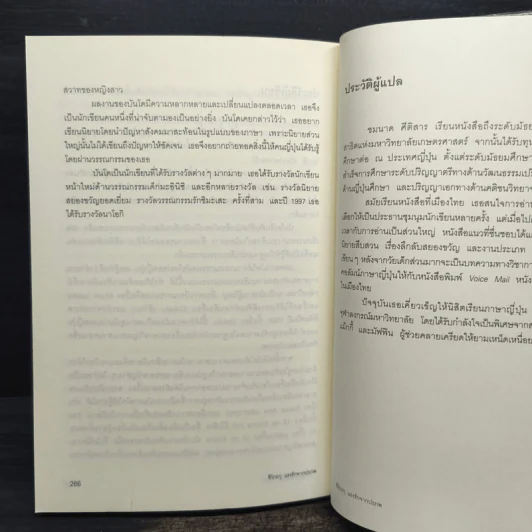 สวาทของหญิงสาว
ผลงานของบันโดมีความหลากหลายและเปลี่ยนแปลงตลอดเวลา เธอจึง
เป็นนักเขียนคนหนึ่งที่น่าจับตามองเป็นอย่างยิ่ง บันโดเคยกล่าวไว้ว่า เธออยาก
เขียนนิยายโดยนำปัญหาสังคมมาสะท้อนในรูปแบบของภาษา เพราะนิยายส่วน
ใหญ่นั้นไม่ได้เขียนถึงปัญหาให้ชัดเจน เธอจึงอยากถ่ายทอดสิ่งนี้ให้คนญี่ปุ่นได้รับรู้
โดยผ่านวรรณกรรมของเธอ
บันโดเป็นนักเขียนที่ได้รับรางวัลต่าง ๆ มากมาย เธอได้รับรางวัลนักเขียน
หน้าใหม่ด้านวรรณกรรมเด็กมะอินิชิ และอีกหลายรางวัล เช่น รางวัลนิยาย
สยองขวัญยอดเยี่ยม รางวัลวรรณกรรมรักชิมะเสะ ครั้งที่สาม และปี 1997 เธอ
ได้รับรางวัลนาโอกิ
266
ประวัติผู้แปล
ชมนาด ศีติสาร เรียนหนังสือถึงระดับมัธย
สาธิตแห่งมหาวิทยาลัยเกษตรศาสตร์ จากนั้นได้รับทุน
ศึกษาต่อ ณ ประเทศญี่ปุ่น ตั้งแต่ระดับมัธยมศึกษา
สำเร็จการศึกษาระดับปริญญาตรีทางด้านวัฒนธรรมเปรี
ด้านญี่ปุ่นศึกษา และปริญญาเอกทางด้านคติชนวิทยาจ
สมัยเรียนหนังสือที่เมืองไทย เธอสนใจการอ่าน
เลือกให้เป็นประธานชุมนุมนักเขียนหลายครั้ง แต่เมื่อไป
เวลากับการอ่านเป็นส่วนใหญ่ หนังสือแนวที่ชื่นชอบได้แ
นิยายสืบสวน เรื่องลึกลับสยองขวัญ และงานประเภท
เขียน ๆ หลังจากวัยเด็กส่วนมากจะเป็นบทความทางวิชากา
คอลัมน์ภาษาญี่ปุ่นให้กับหนังสือพิมพ์ Voice Mail หนัง
ในเมืองไทย
ปัจจุบันเธอเคี่ยวเข็ญให้นิสิตเรียนภาษาญี่ปุ่น
จุฬาลงกรณ์มหาวิทยาลัย โดยได้รับกำลังใจเป็นพิเศษจาก
แม็กกี้ และมัฟฟิน ผู้ช่วยคลายเครียดให้ยามเหน็ดเหนื่อย